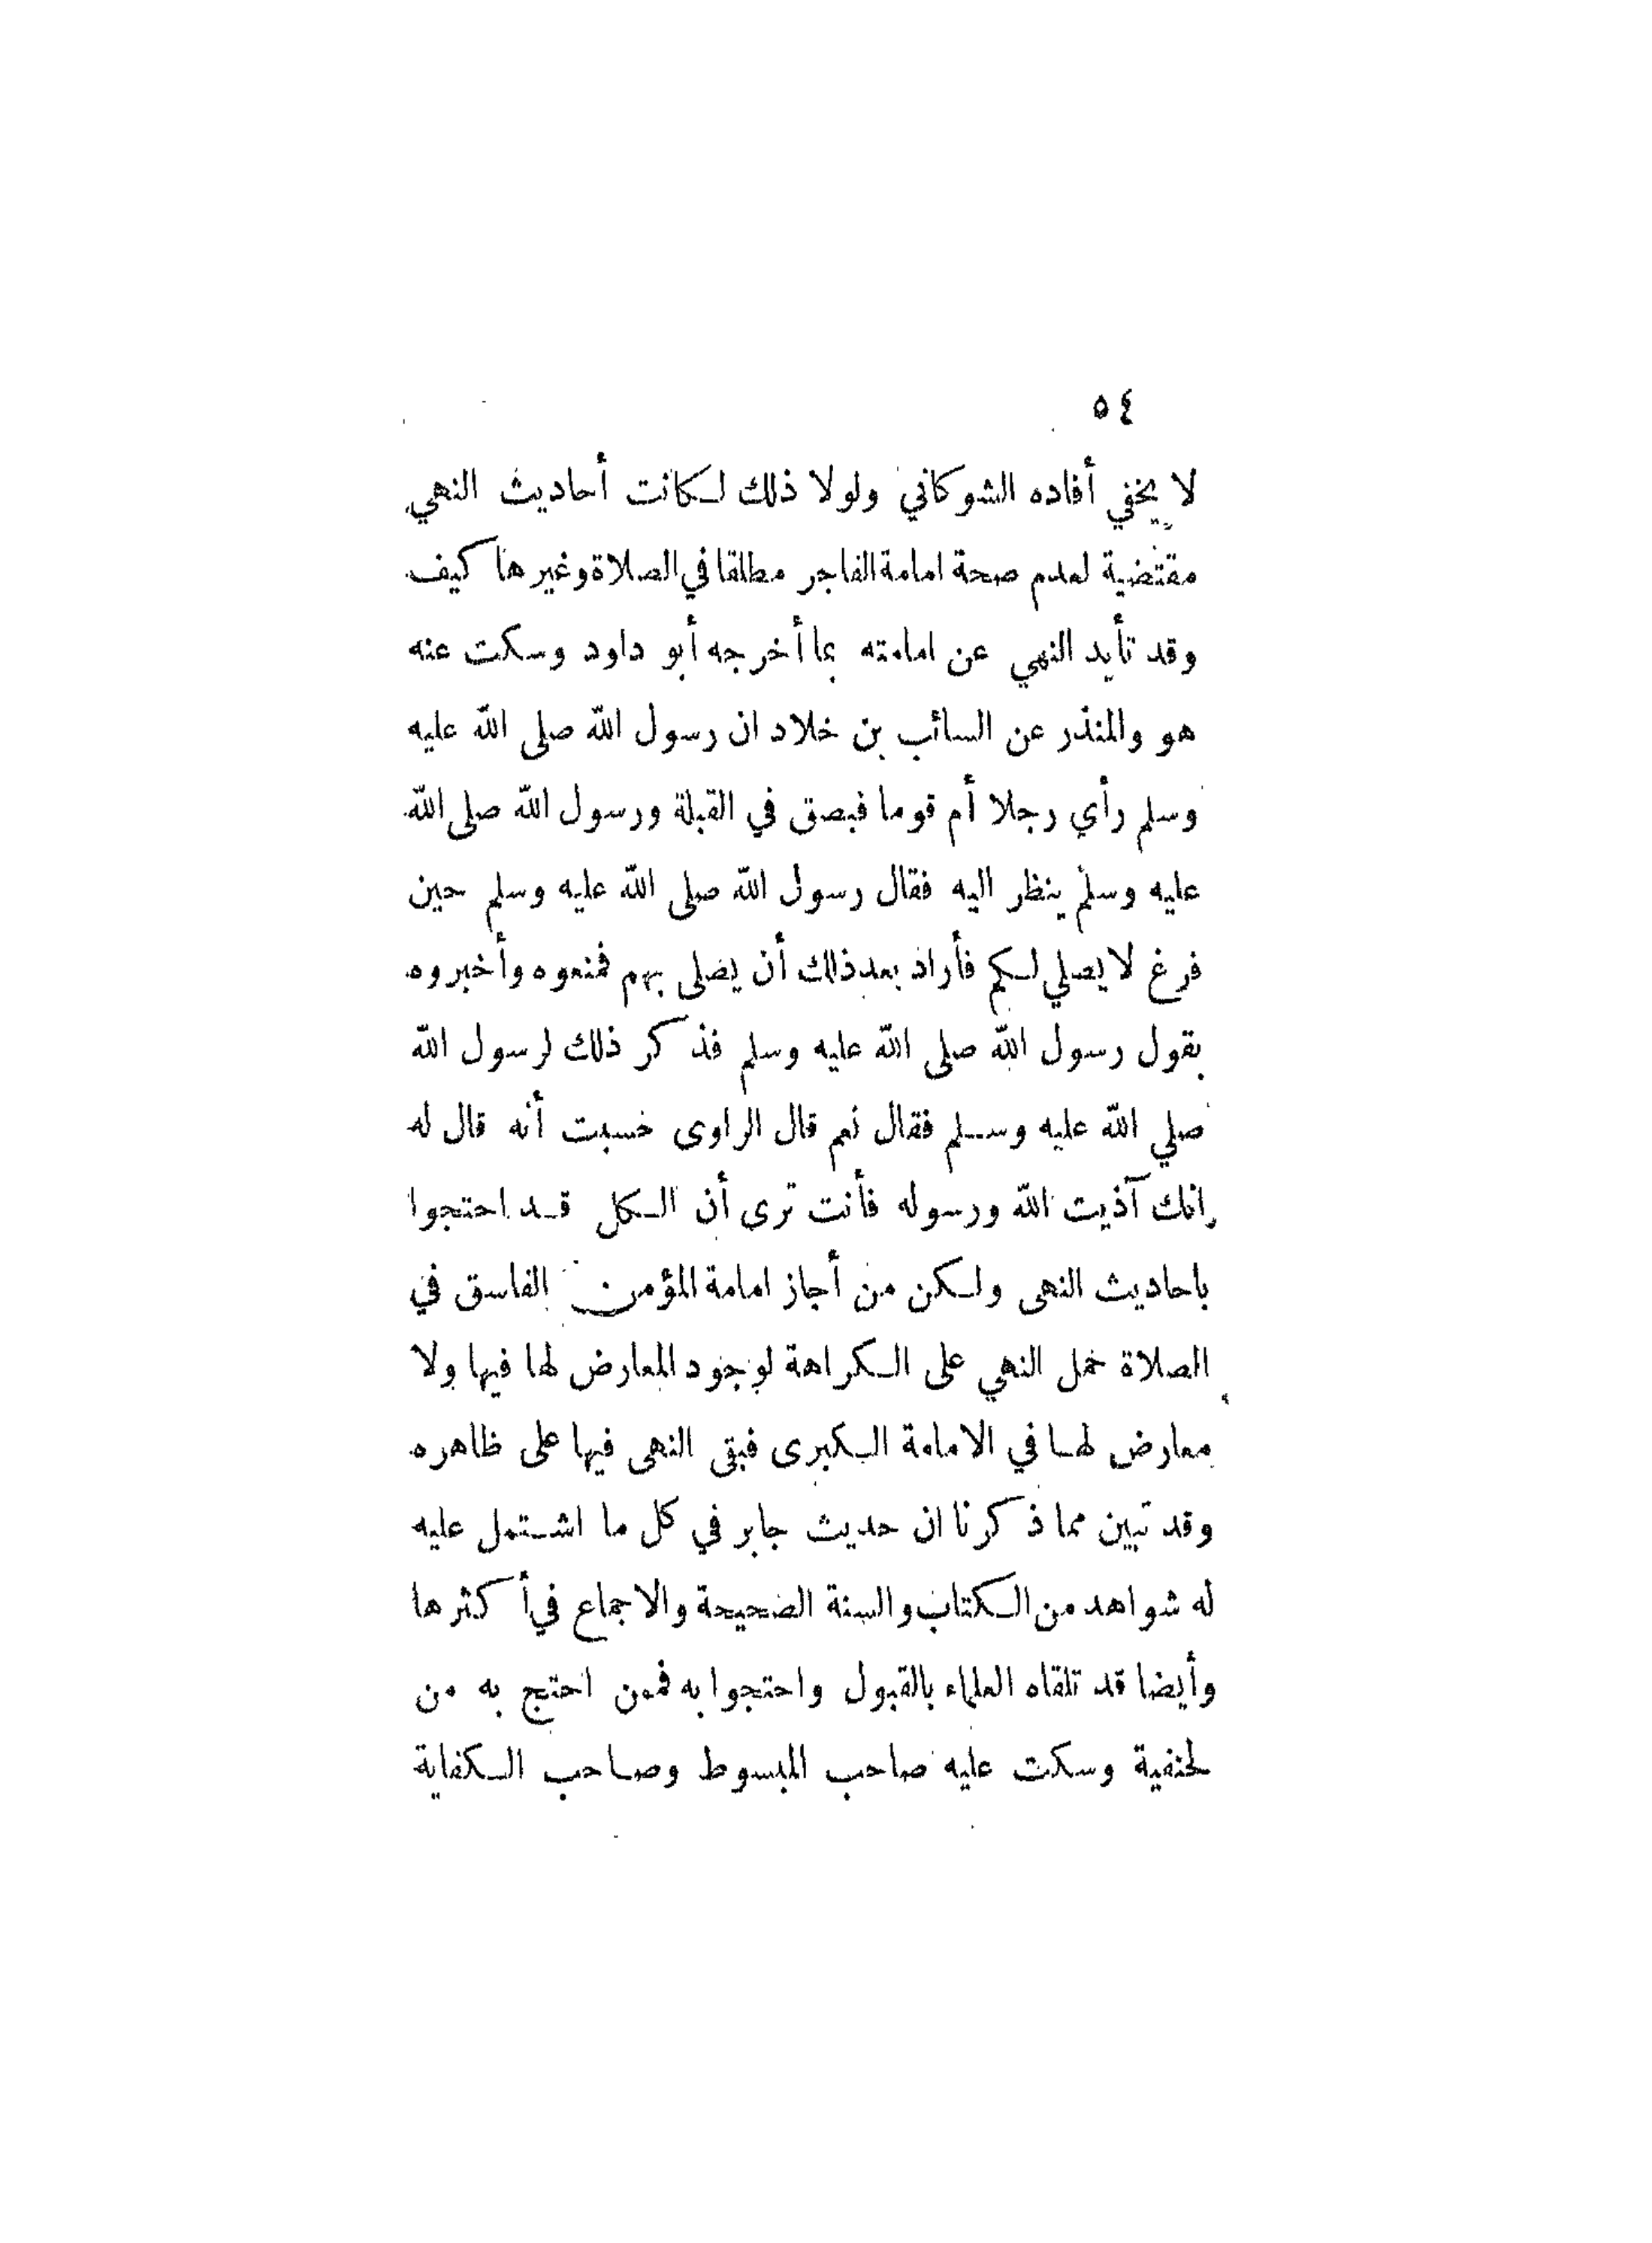 ٥٤
لا يخفي أفاده الشوكاني ولولا ذلك لكانت أحاديث النهي
مقتضية لعدم صحة امامة الفاجر مطلقا في الصلاة وغيرها كيف
وقد تأيد النهي عن امامته بما أخرجه أبو داود وسكت عنه
هو والمنذر عن السائب بن خلاد ان رسول الله صلى الله عليه
وسلم رأي رجلا أم قوما فبصق في القبلة ورسول الله صلى الله
عليه وسلم ينظر اليه فقال رسول الله صلى الله عليه وسلم حين
فرغ لا يصلي لكم فأراد بعد ذلك أن يصلى بهم فمنعوه وأخبروه
بقول رسول الله صلى الله عليه وسلم فذكر ذلك لرسول الله
صلي الله عليه وسلم فقال نعم قال الراوى حسبت أنه قال له
انك آذيت الله ورسوله فأنت ترى أن الكل قد احتجوا
باحاديث النهى ولكن من أجاز امامة المؤمن الفاسق في
الصلاة حمل النهي على الكراهة لوجود المعارض لها فيها ولا
معارض لها في الامامة الكبرى فبقى النهى فيها على ظاهره
وقد تبين مما ذكرنا ان حديث جابر في كل ما اشتمل عليه
له شواهد من الكتاب والسنة الصحيحة والاجماع في أكثرها
وأيضا قد تلقاه العلماء بالقبول واحتجوا به فممن احتج به من
لحنفية وسكت عليه صاحب المبسوط وصاحب الكفاية